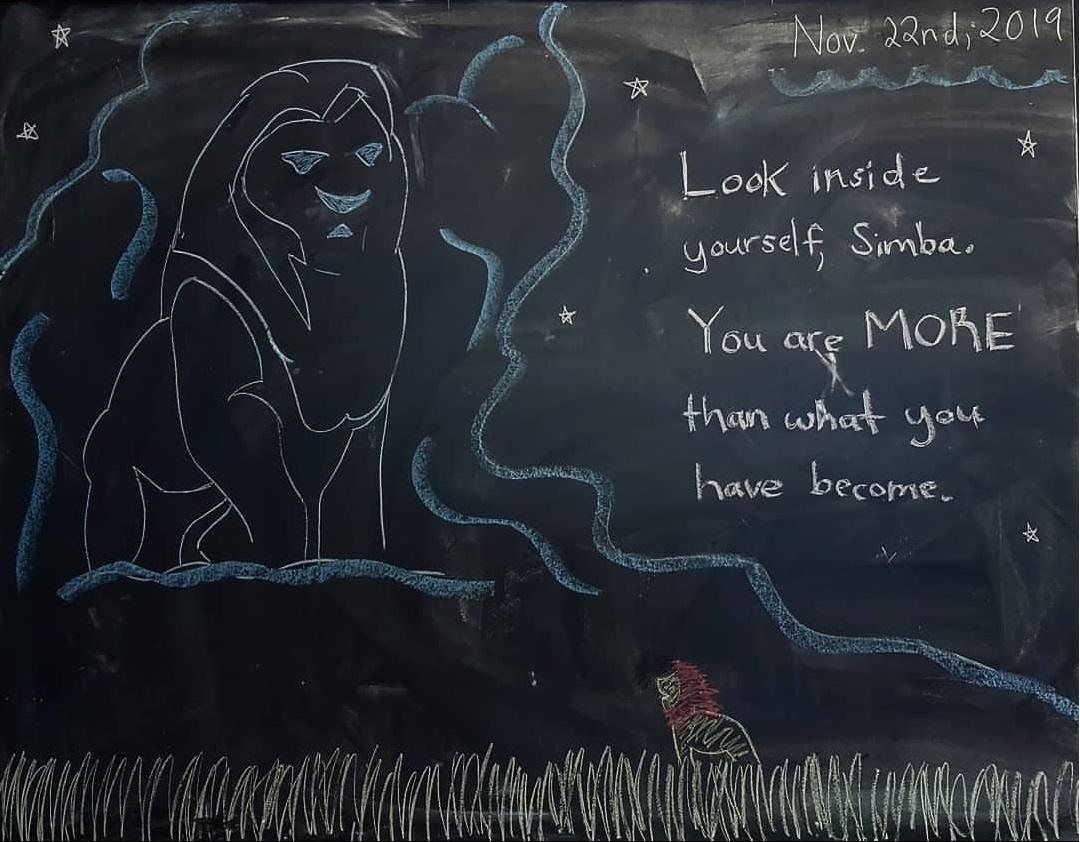 Nov. 22nd; 2019
Look inside
yourself, Simba.
You are MORE
than what you
have become.